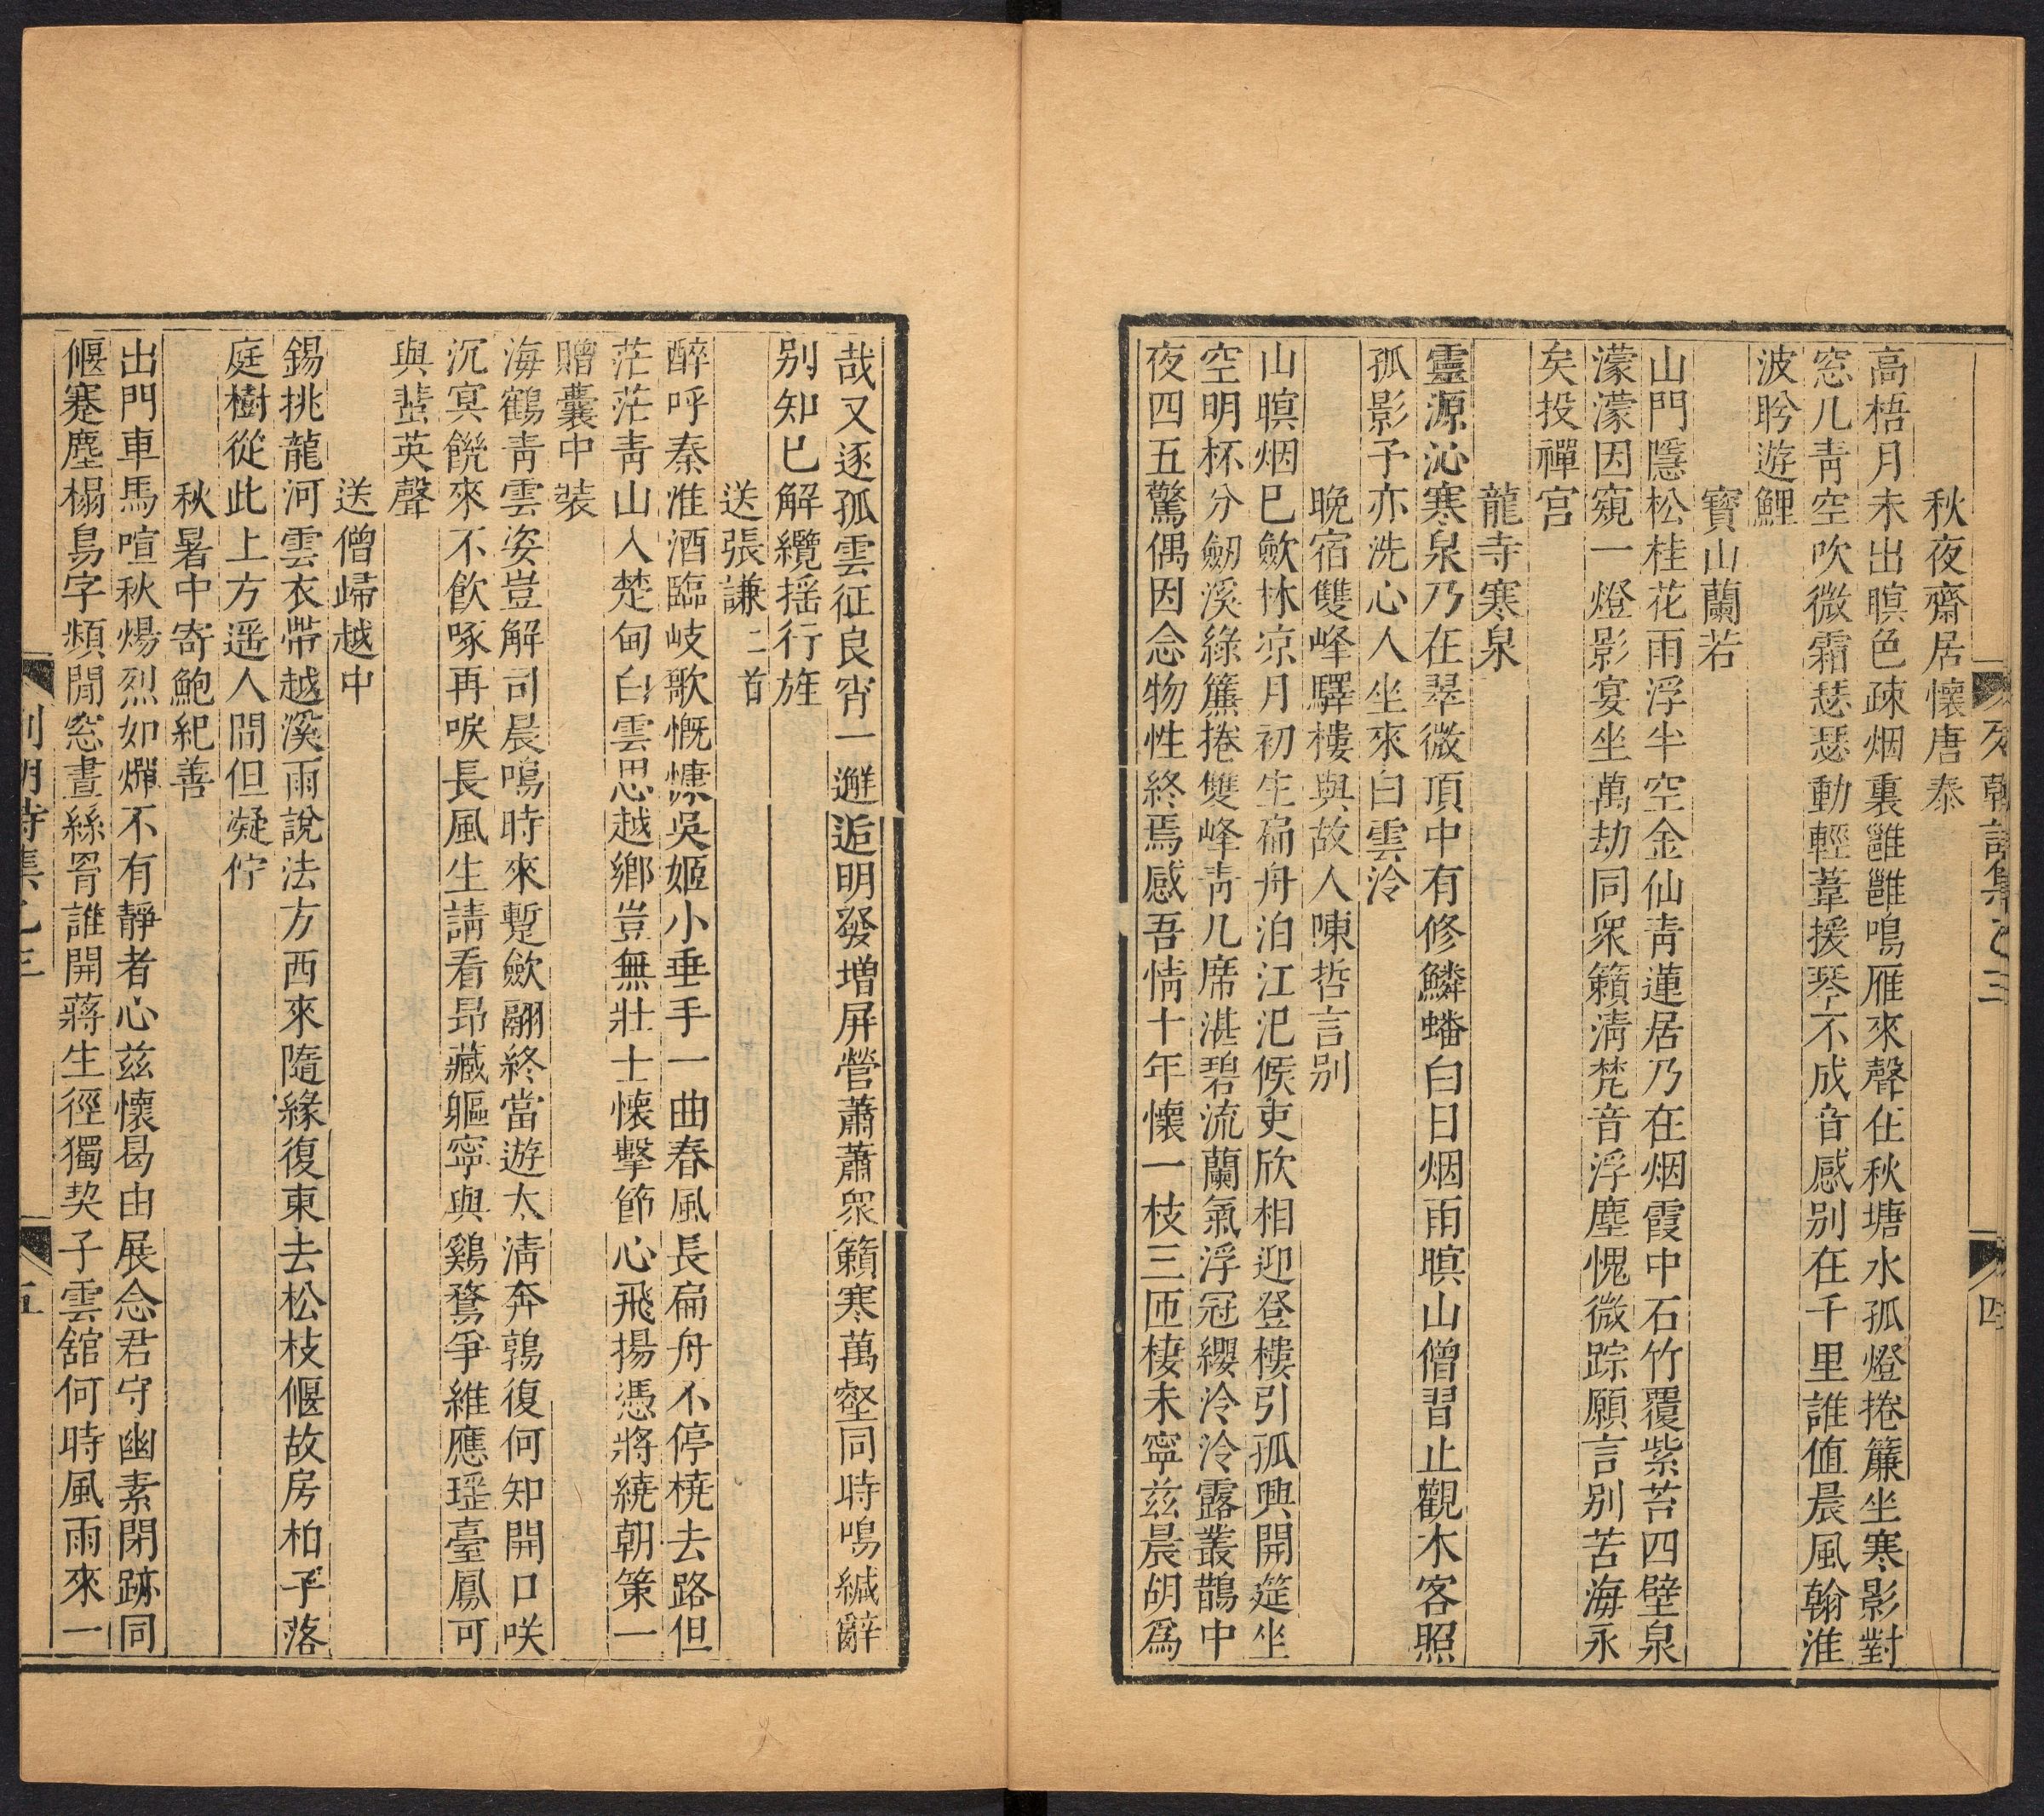 列朝詩集乙三
四
秋夜齋居懷唐泰
高梧月未出暝色疎烟裏雝雝鳴雁來聲在秋塘水孤燈捲簾坐寒影對
窓几靑空吹微霜瑟瑟動輕葦援琴不成音感别在千里誰值晨風翰淮
波聆遊鯉
寶山蘭若
山門隱松桂花雨浮半空金仙靑蓮居乃在烟霞中石竹覆紫苔四壁泉
濛濛因窺一燈影宴坐萬劫同衆籟淸梵音浮塵愧微踪願言别苦海永
矣投禪宮
龍寺寒泉
靈源沁寒泉乃在翠微頂中有修鱗蟠白日烟雨暝山僧習止觀木客照
孤影予亦洗心人坐來白雲泠
晩宿雙峰驛樓與故人陳哲言别
山暝烟巳歛林凉月初生扁舟泊江汜候吏欣相迎登樓引孤興開筵坐
空明杯分劒溪綠簾捲雙峰靑几席湛碧流蘭氣浮冠纓泠泠露叢鵲中
夜四五驚偶因念物性終焉感吾情十年懷一枝三匝棲未寧兹晨胡爲
哉又逐孤雲征良宵一邂逅明發增屏營蕭蕭衆籟寒萬壑同時鳴緘辭
别知巳解纜揺行旌
送張謙二首
醉呼秦淮酒臨岐歌慨慷吳姬小垂手一曲春風長扁舟不停橈去路但
茫茫靑山入楚甸白雲思越鄕豈無壯士懷擊節心飛揚憑將繞朝策一
贈囊中裝
海鶴靑雲姿豈解司晨鳴時來蹔歛翮終當遊太淸奔鶉復何知開口咲
沉冥饑來不飮啄再唳長風生請看昻藏軀寧與鷄鶩爭維應瑶臺鳳可
與蜚英聲
送僧歸越中
錫挑龍河雲衣帶越溪雨說法方西來隨緣復東去松枝偃故房柏子落
庭樹從此上方遥人間但凝佇
秋暑中寄鮑紀善
出門車馬喧秋煬烈如燀不有靜者心兹懷曷由展念君守幽素閉跡同
偃蹇塵榻易字頻閒窓晝絲罥誰開蔣生徑獨契子雲舘何時風雨來一
列朝詩集乙三
五